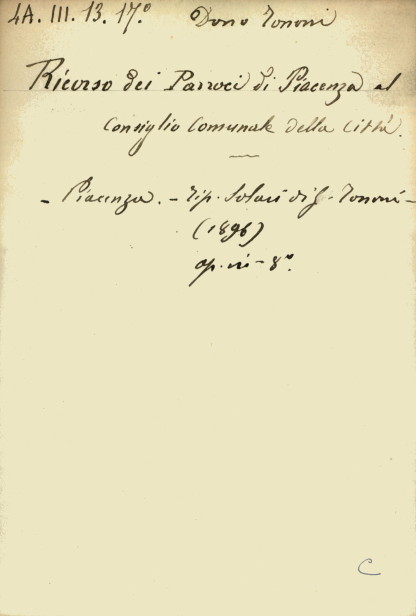 4A. III. 13. 17.º Dono Tononi
Ricorso dei Parroci di Piacenza al
Consiglio Comunale della Città.
- Piacenza. - Tip. Solari di G. Tononi -
(1896)
op. in-8º.
C